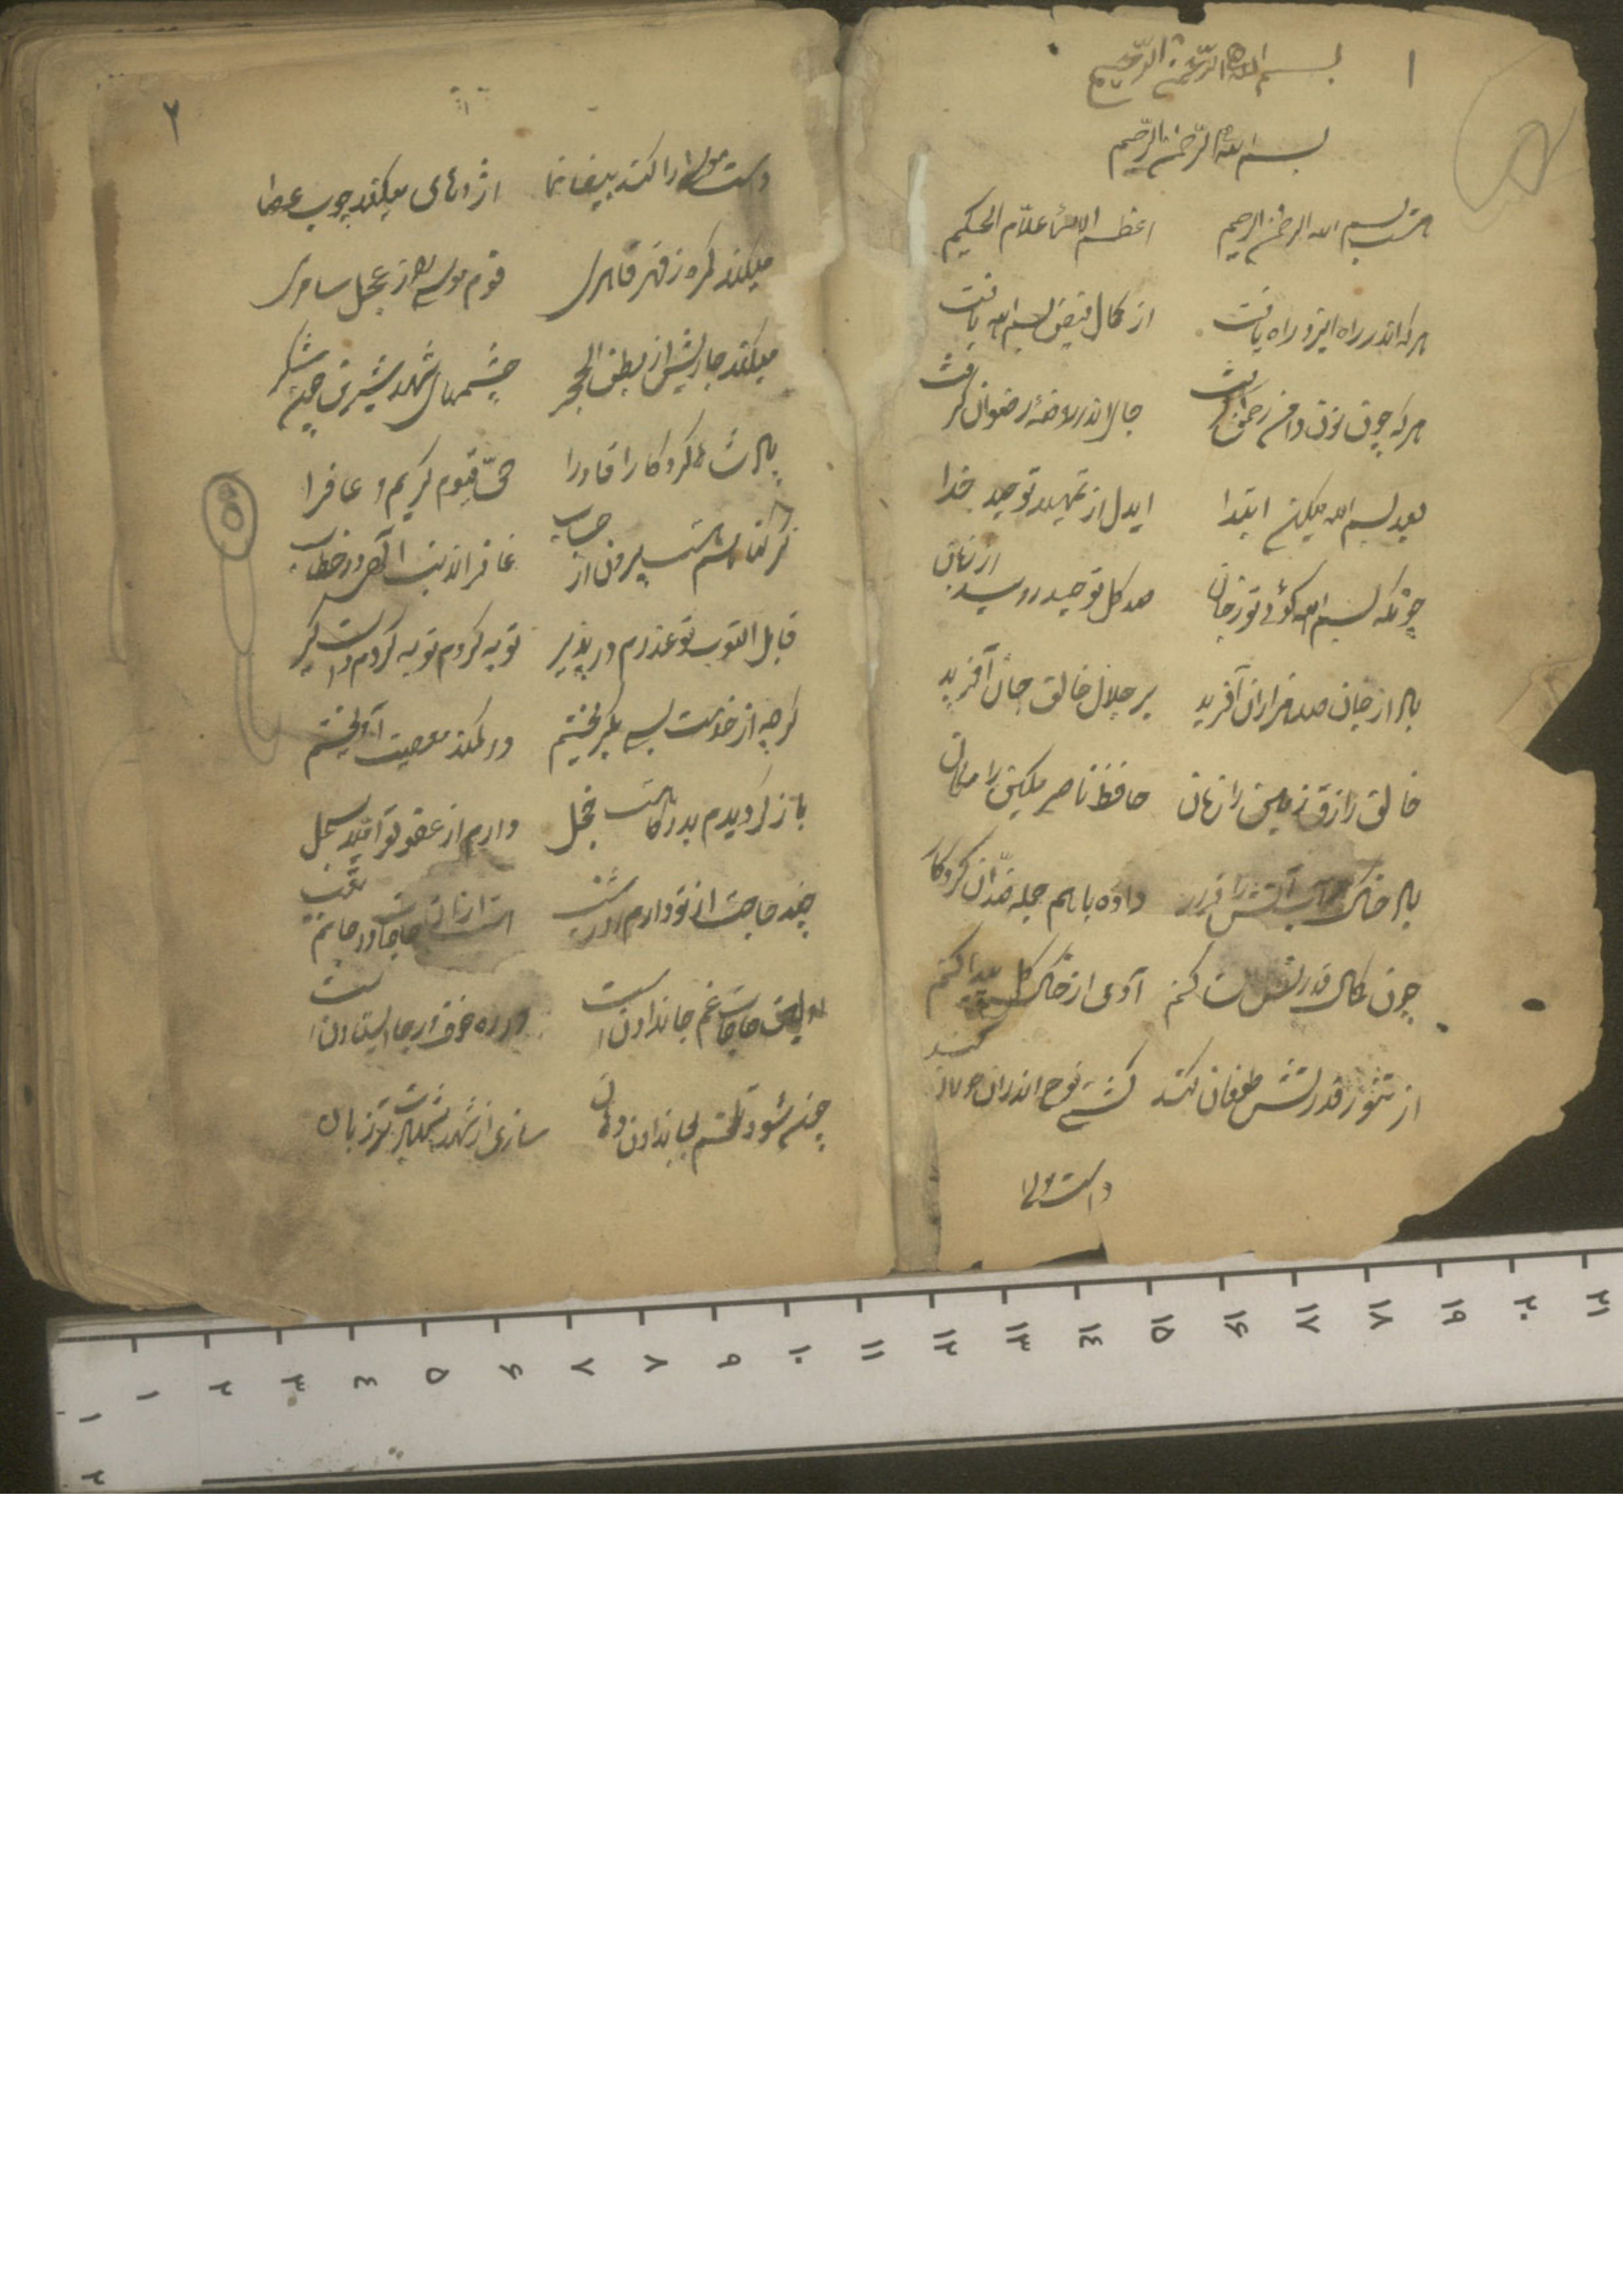 ۱
بسم الله الرحمن الرحیم
بسم الله الرحمن الرحیم
هست بسم الله الرحمن الرحیم اعظم الاسماء علام الحکیم
هرکه اندر راه ایزد راه یافت از کمال فیض بسم الله یافت
هرکه چون نون دامن رحمن گرفت جا اندر روضه رضوان گرفت
بعد بسم الله میکن ابتدا ایدل از تمهید توحید خدا
چونکه بسم الله گوئی تو زجان صد گل توحید روید از زبان
بار از جان صد هزاران آفرید بر جلال خالق جان آفرید
خالق رازق زمین را زمان حافظ ناصر مکین را مکان
باد خاک آب آتش را قرار داده باهم جمله ضدان کردکار
چون کمال قدرتش کنم آدمی از خاک گل پیدا کنم
از تنور قدرتش طوفان کند کشتی نوح اندران کند
دست موسی
۲
دست موسی را کند بیضا نما اژدهای میکند چوب عصا
میکند گمره ز قهر قاهری قوم موسی را ز عجل سامری
میکند جاریش از بطن الحجر چشمهای شهد شیرین چون شکر
کردکارا قادرا حی قیوم کریم و غافرا
گر گناهم هست بیرون از حساب غافر الذنب آمد در خطاب
قابل التوب تو عذرم در پذیر توبه کردم توبه کردم دست گیر
گرچه از خدمت بسی بگریختم در کمند معصیت آویختم
باز گردیدم بدرگاهت خجل دارم از عفو تو امید سجل
چند حاجت از تو دارم
اولین حاجات غم جاندادن است در ره خوف و رجا استادن است
چند شود تلخم بجاندادن دهان سازی از شهد شهادت تر زبان
۱ ۲ ۳ ۴ ۵ ۶ ۷ ۸ ۹ ۱۰ ۱۱ ۱۲ ۱۳ ۱۴ ۱۵ ۱۶ ۱۷ ۱۸ ۱۹ ۲۰ ۲۱
۱
۲